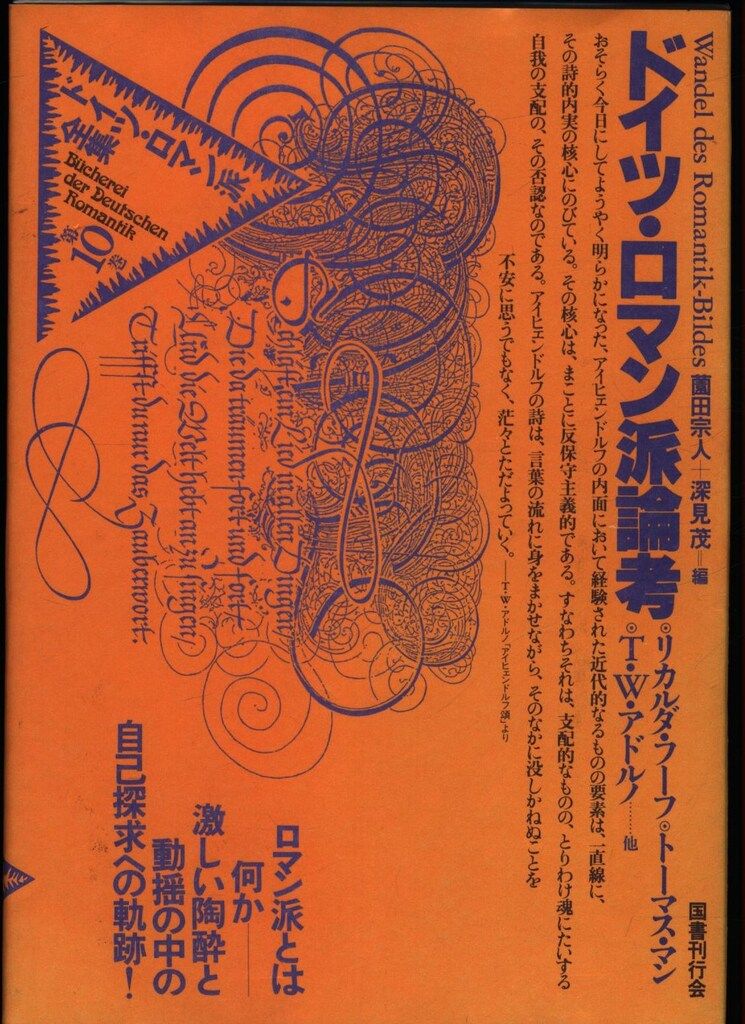 Wandel des Romantik-Bildes
薗田宗人＋深見茂＝編
国書刊行会
ドイツ・ロマン派論考
◉リカルダ・フーフ◉トーマス・マン
◉T・W・アドルノ……他
おそらく今日にしてようやく明らかになった、アイヒェンドルフの内面において経験された近代的なるものの要素は、一直線に、
その詩的内実の核心にのびている。その核心は、まことに反保守主義的である。すなわちそれは、支配的なものの、とりわけ魂にたいする
自我の支配の、その否認なのである。アイヒェンドルフの詩は、言葉の流れに身をまかせながら、そのなかに没しかねぬことを
不安に思うでもなく、茫々とただよっていく。——T・W・アドルノ「アイヒェンドルフ頌」より
ドイツ・ロマン派
全集
Bücherei
der Deutschen
Romantik
第10巻
Schläft ein Lied in allen Dingen,
Die da träumen fort und fort,
Und die Welt hebt an zu singen,
Triffst du nur das Zauberwort.
ロマン派とは
何か——
激しい陶酔と
動揺の中の
自己探求への軌跡！